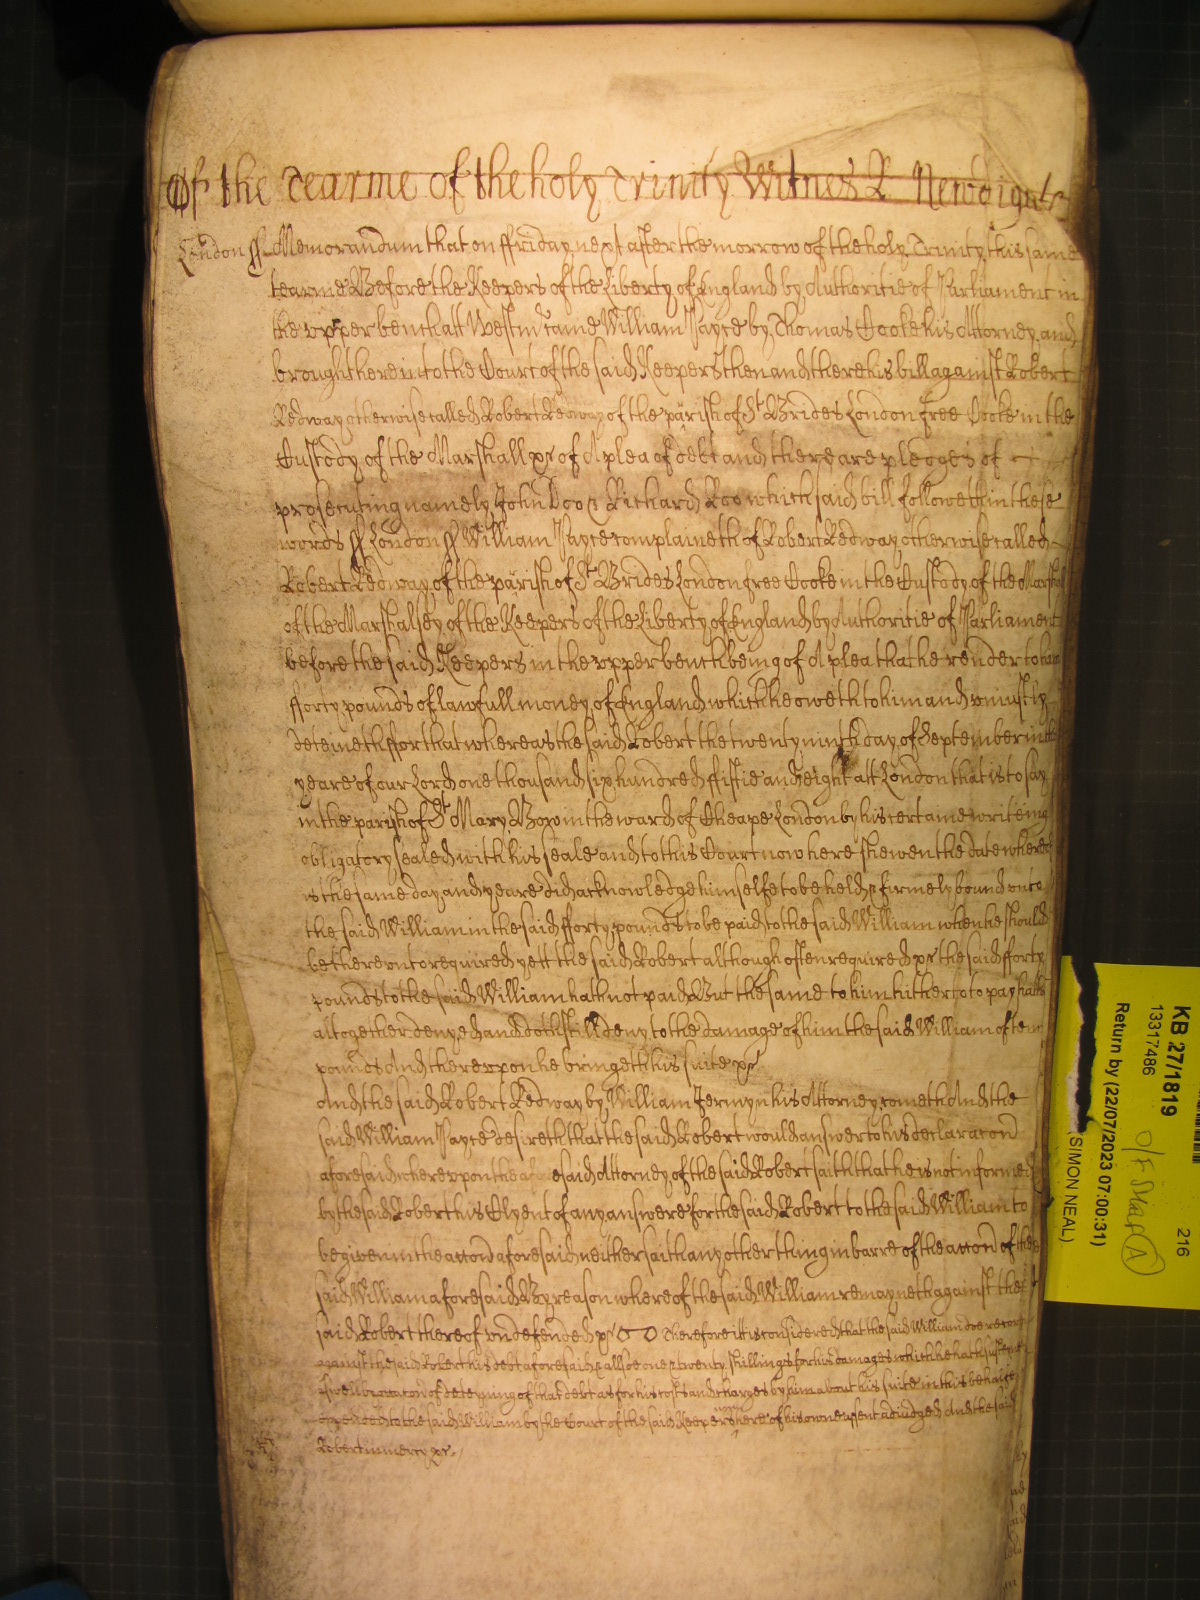 Of the Tearme of the holy Trinity Witnes R Newdigate
London ss Memorandum that on ffriday next after the morrow of the holy Trinity this same
tearme Before the Keepers of the Liberty of England by Authoritie of Parliament in
the vpper bench att Westmr came William Payce by Thomas Cooke his Attorney and
brought here into the Court of the said Keepers then and there his bill against Robert
Redway otherwise called Robert Redway of the parish of St Brides London free Cooke in the
Custody of the Marshall &c of A plea of debt and there are pledges of
prosecuting namely John Doo & Richard Roo which said bill followeth in these
words ss London ss William Payce complaineth of Robert Redway otherwise called
Robert Redway of the parish of St Brides London free Cooke in the Custody of the Marshall
of the Marshalsey of the Keepers of the Liberty of England by Authoritie of Parliament
before the said Keepers in the vpper bench being of A plea that he render to him
fforty pounds of lawfull money of England which he oweth to him and vniustly
deteineth ffor that whereas the said Robert the twenty ninth day of September in the
yeare of our Lord one thousand six hundred fiftie and eight att London that is to say
in the parish of St Mary Bow in the ward of Cheape London by his certaine writeing
obligatory sealed with his seale and to this Court now here shewen the date whereof
is the same day and yeare did acknowledge himselfe to be held & firmely bound vnto
the said William in the said fforty pounds to be paid to the said William when he should
be therevnto required yett the said Robert although often required &c the said fforty
pounds to the said William hath not paid But the same to him hitherto to pay hath
altogether denyed and doth still deny to the damage of him the said William of ten
pounds And therevpon he bringeth his suite &c
And the said Robert Redway by William Jermyn his Attorney cometh And the
said William Payce desireth that the said Robert would answer to his declaracon
aforesaid wherevpon the aforesaid Attorney of the said Robert saith that he is not informed
by the said Robert his Clyent of any answere for the said Robert to the said William to
be given in the accon aforesaid neither saith any other thing in barre of the accon of the
said William aforesaid By reason whereof the said William remayneth against the
said Robert thereof vndefended &c Therefore itt is considered that the said William doe recover
against the said Robert his debt aforesaid & allsoe one & twenty shillings for his damages which he hath susteyned
aswell by occacon of deteyning of that debt as for his costs and charges by him about his suite in this behalfe
expended to the said William by the Court of the said Keepers now here of his owne assent adiudged And the said
Robert in mercy &c
KB 27/1819
13317486
216
Return by (22/07/2023 07:00:31)
(SIMON NEAL)